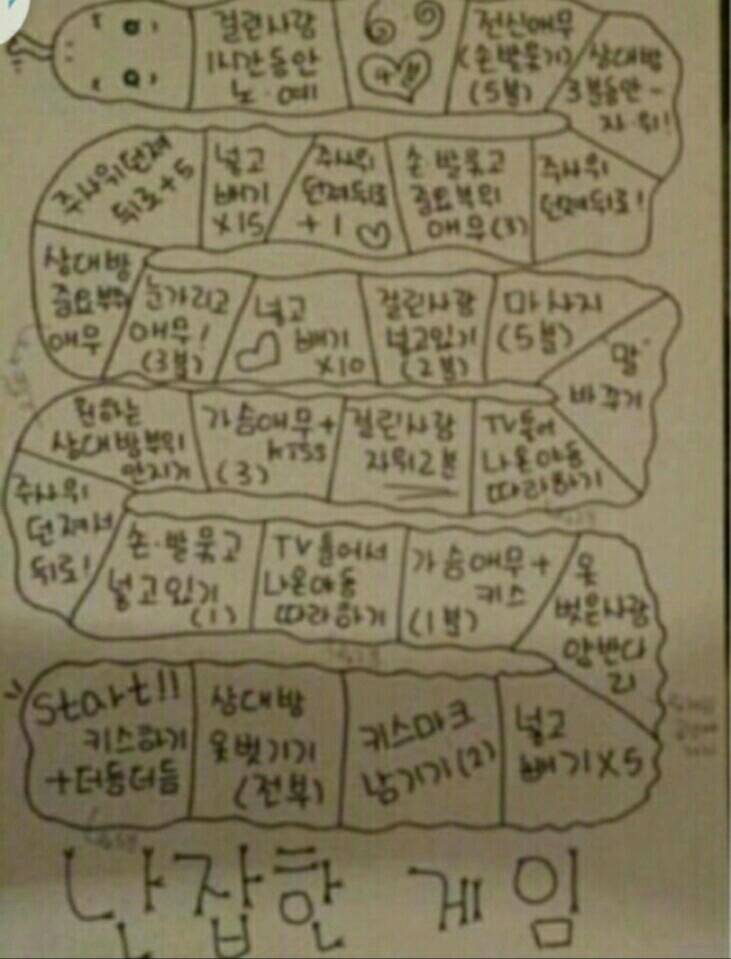 걸린사람
1시간동안
노·예
6·9
전신애무
(손발묶기)
(5분)
상대방
3분동안
자·위!
주사위던져
뒤로+5
넣고
빼기
x15
주사위
던져뒤로
+1
손·발묶고
중요부위
애무(3)
주사위
던져뒤로!
상대방
중요부위
애무
눈가리고
애무!
(3분)
넣고
빼기
x10
걸린사람
넣고있기
(2분)
마사지
(5분)
"말"
바꾸기
원하는
상대방부위
만지기
가슴애무+
kiss
(3)
걸린사람
자위2분
TV틀어
나온야동
따라하기
주사위
던져서
뒤로!
손·발묶고
넣고있기
(1)
TV틀어서
나온야동
따라하기
가슴애무+
키스
(1분)
옷
벗은사람
start!!
키스하기
+더듬더듬
상대방
옷벗기기
(전부)
키스마크
남기기(2)
넣고
빼기x5
난잡한 게임